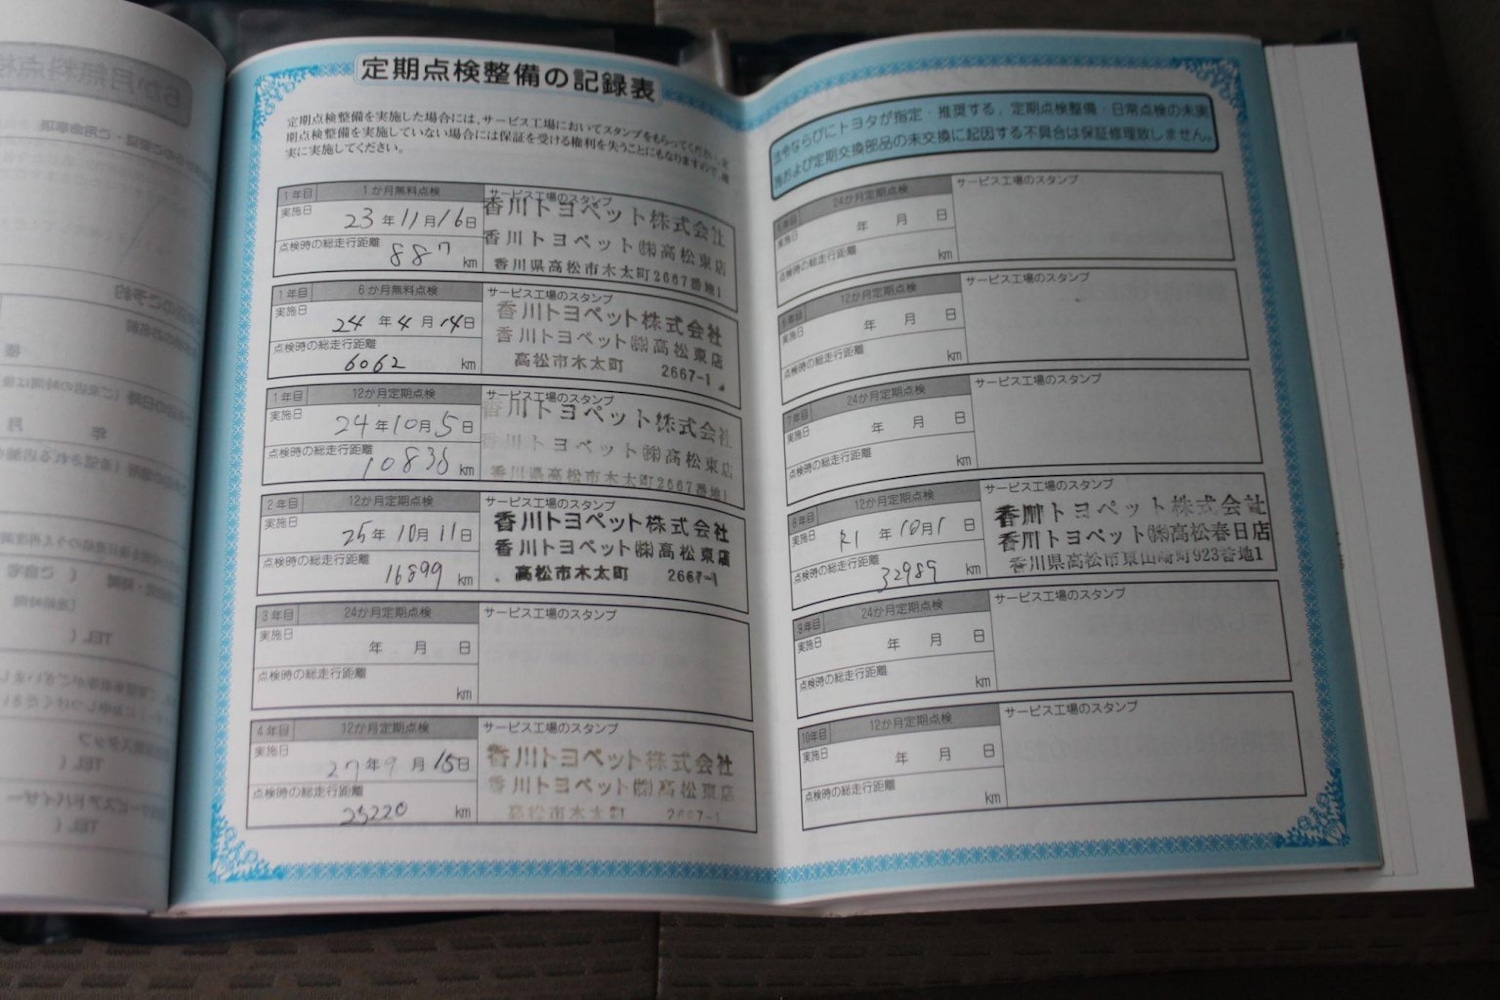 定期点検整備の記録表
定期点検整備を実施した場合には、サービス工場においてスタンプをもらってください。定
期点検整備を実施していない場合には保証を受ける権利を失うことにもなりますので、確
実に実施してください。
1年目 1か月無料点検 サービス工場のスタンプ
実施日 23年11月16日
点検時の総走行距離 887 km
香川トヨペット株式会社
香川トヨペット㈱高松東店
香川県高松市木太町2667番地1
1年目 6か月無料点検 サービス工場のスタンプ
実施日 24年4月14日
点検時の総走行距離 6062 km
香川トヨペット株式会社
香川トヨペット㈱高松東店
高松市木太町 2667-1
1年目 12か月定期点検 サービス工場のスタンプ
実施日 24年10月5日
点検時の総走行距離 km
香川トヨペット株式会社
香川トヨペット㈱高松東店
香川県高松市木太町2667番地1
2年目 12か月定期点検 サービス工場のスタンプ
実施日 25年10月11日
点検時の総走行距離 16899 km
香川トヨペット株式会社
香川トヨペット㈱高松東店
高松市木太町 2667-1
3年目 24か月定期点検 サービス工場のスタンプ
実施日 年 月 日
点検時の総走行距離 km
4年目 12か月定期点検 サービス工場のスタンプ
実施日 27年9月15日
点検時の総走行距離 25220 km
香川トヨペット株式会社
香川トヨペット㈱高松東店
高松市木太町 2667-1
法令ならびにトヨタが指定・推奨する、定期点検整備・日常点検の未実
施および定期交換部品の未交換に起因する不具合は保証修理致しません。
5年目 24か月定期点検 サービス工場のスタンプ
実施日 年 月 日
点検時の総走行距離 km
6年目 12か月定期点検 サービス工場のスタンプ
実施日 年 月 日
点検時の総走行距離 km
7年目 24か月定期点検 サービス工場のスタンプ
実施日 年 月 日
点検時の総走行距離 km
8年目 12か月定期点検 サービス工場のスタンプ
実施日 R1年10月1日
点検時の総走行距離 32989 km
香川トヨペット株式会社
香川トヨペット㈱高松春日店
香川県高松市東山崎町923番地1
9年目 24か月定期点検 サービス工場のスタンプ
実施日 年 月 日
点検時の総走行距離 km
10年目 12か月定期点検 サービス工場のスタンプ
実施日 年 月 日
点検時の総走行距離 km